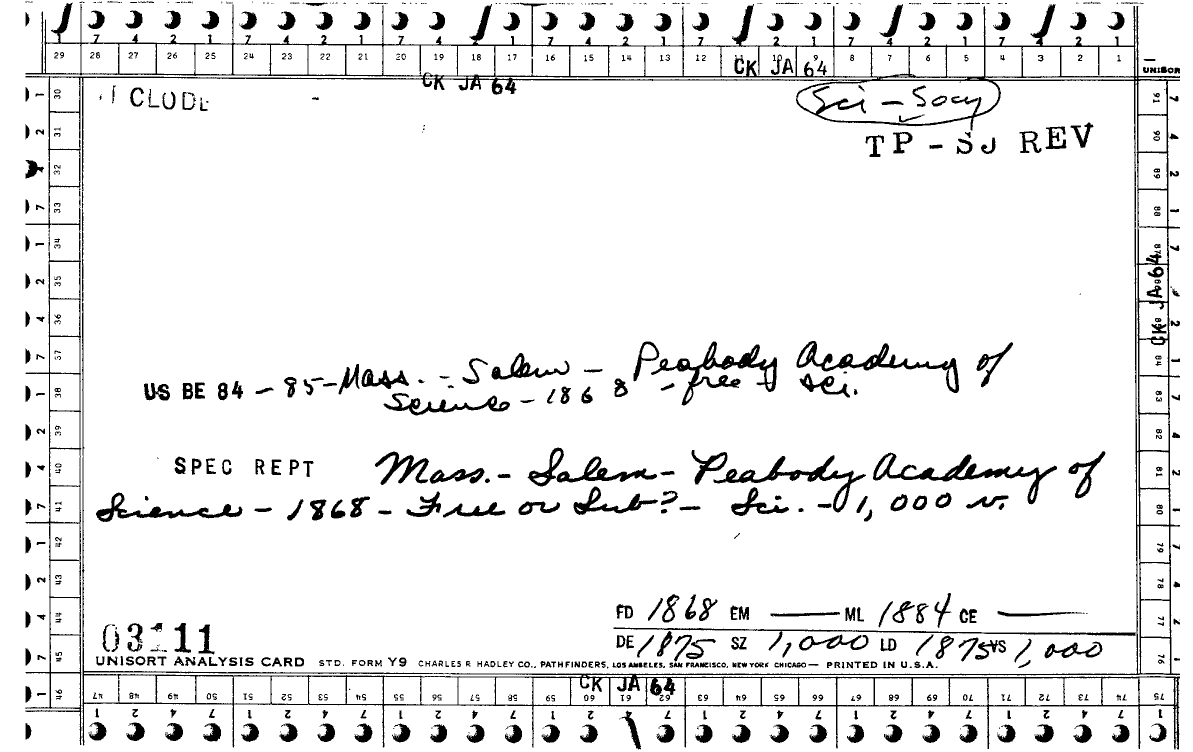 7 4 2 1 7 4 2 1 7 4 2 1 7 4 2 1 7 4 2 1 7 4 2 1 7 4 2 1
29 28 27 26 25 24 23 22 21 20 19 18 17 16 15 14 13 12 8 7 6 5 4 3 2 1
CK JA 64
CK JA 64
UNISORT
CLODE
Sci - Socy
TP - SJ REV
US BE 84 - 85 - Mass. - Salem - Peabody Academy of
Science - 1868 - free - sci.
SPEC REPT Mass. - Salem - Peabody Academy of
Science - 1868 - Free or Sub? - Sci. - 1,000 v.
CK JA 64
FD 1868 EM — ML 1884 CE —
DE 1875 SZ 1,000 LD 1875 VS 1,000
03111
UNISORT ANALYSIS CARD STD. FORM Y9 CHARLES R HADLEY CO., PATHFINDERS, LOS ANGELES, SAN FRANCISCO, NEW YORK CHICAGO — PRINTED IN U.S.A.
CK JA 64
30 31 32 33 34 35 36 37 38 39 40 41 42 43 44 45 46
47 48 49 50 51 52 53 54 55 56 57 58 59 60 61 62 63 64 65 66 67 68 69 70 71 72 73 74 75
76 77 78 79 80 81 82 83 84 88 89 90 91